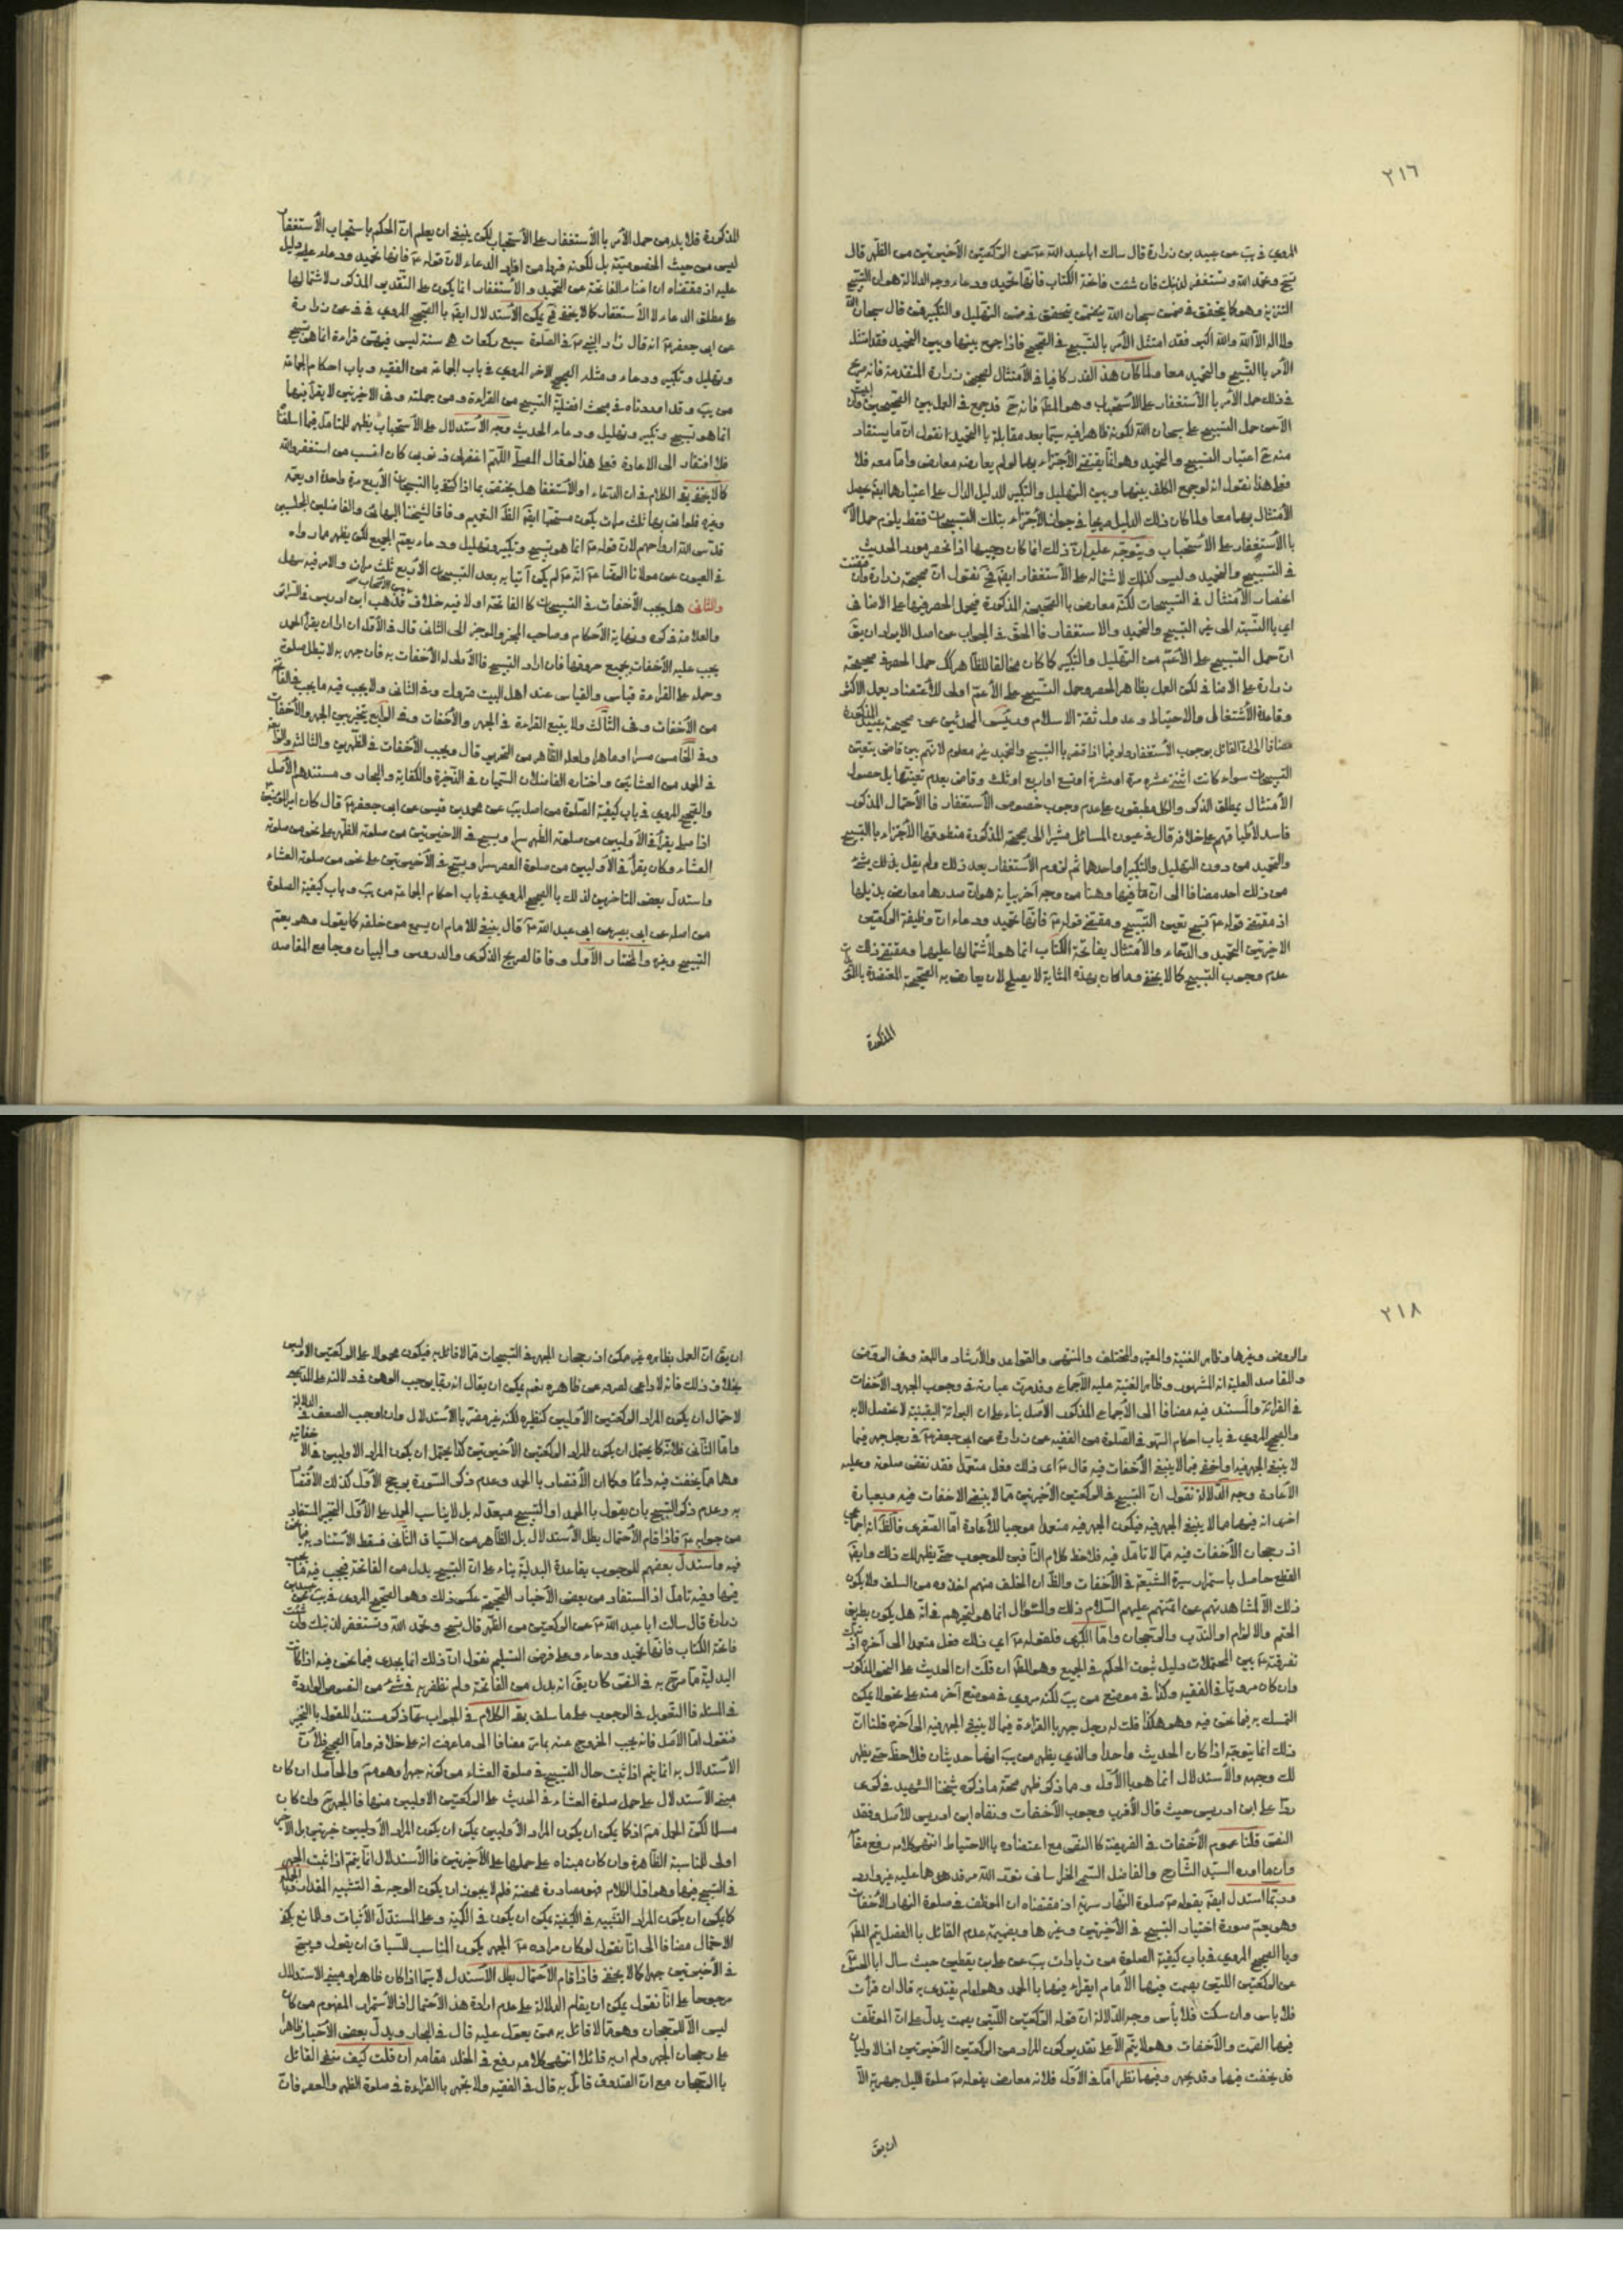 ٢١٦
المروي في يب عن عبيد بن زرارة قال سالت ابا عبد الله ع عن الركعتين الأخيرتين من الظهر قال
تسبح وتحمد الله وتستغفر لذنبك فان شئت فاتحة الكتاب فانها تحميد ودعاء وجه الدلالة هو ان التسبيح
التنزيه وهو كما يتحقق في ضمن سبحان الله يتحقق في ضمن التهليل والتكبير فمن قال سبحان الله
ولا اله الا الله والله اكبر فقد امتثل الأمر بالتسبيح في الصحيح فاذا جمع بينها وبين التحميد فقد امتثل
الأمر بالتسبيح والتحميد معا ولما كان هذا القدر كافيا في الأمتثال لصحيح زرارة المتقدمة فانه مرجع
في ذلك حمل الأمر بالأستغفار على الأستحباب وهو المط فانه ح قد جمع في العمل بين الصحيحين
الأمن حمل التسبيح على سبحان الله لكونه ظاهرا فيه سيما بعد مقابلة بالتحميد انا نقول ان ما يستفاد
منه ح اعتبار التسبيح والتحميد وهو انما يقتضي الأجتزاء بهما لو لم يعارضه معارض واما معه فلا
فعلى هذا نقول انه لو جمع المكلف بينهما وبين التهليل والتكبير للدليل الدال على اعتبارها ايض يحصل
الأمتثال بهما معا ولما كان ذلك الدليل صريحا في جواز الأجتزاء بتلك التسبيحات فقط يلزم حمل الأمر
بالأستغفار على الأستحباب ويتوجه عليه ان ذلك انما كان وجيها اذا انحصر مورد الحديث
في التسبيح والتحميد وليس كذلك لاشتماله على الأستغفار ايض فح نقول ان صحيحة زرارة وان اقتضت
انحصار الأمتثال في التسبيحات لكنه معارض بالصحيحة المذكورة فيحمل الحصر فيها على الاضافي
اي بالنسبة الى غير التسبيح والتحميد والاستغفار فالحق في الجواب عن اصل الايراد ان يق
ان حمل التسبيح على الأعم من التهليل والتكبير كما كان مخالفا للظاهر كك حمل الحصر في صحيحة
زرارة على الاضافي لكن العمل بظاهر الحصر وحمل التسبيح على الأعم اولى للأعتضاد بعمل الاكثر
وقاعدة الأشتغال والاحتياط وعدول ثقة الاسلام ورئيس المحدثين عن صحيحة عبيد المذكورة
مضافا الى ان القائل بوجوب الأستغفار ولو فيما اذا قصر بالتسبيح والتحميد غير معلوم لانهم بين قاض بتعين
التسبيحات سواء كانت اثنتي عشرة مرة او عشرة او تسع او اربع او ثلث وقاض بعدم تعينها بل حصول
الأمتثال بمطلق الذكر والكل مطبقون على عدم وجوب خصوص الأستغفار فالأحتمال المذكور
فاسد لأطباقهم على خلافه قال في عيون المسائل مشيرا الى صحيحة المذكورة منطوقها الأجتزاء بالتسبيح
والتحميد من دون التهليل والتكبير او احدهما ثم لزوم الأستغفار بعد ذلك ولم يقل بذلك بشئ
من ذلك احد مضافا الى ان ما فيها وهنا من وجه آخر بيانه هو ان صدرها معارض بذيلها
اذ مقتضى قوله ع تسبح تعين التسبيح ومقتضى قوله ع فانها تحميد ودعاء ان وظيفة الركعتين
الاخيرتين التحميد والدعاء والأمتثال بفاتحة الكتاب انما هو لأشتمالها عليهما ومقتضى ذلك
عدم وجوب التسبيح كما لا يخفى وما كان بهذه المثابة لا يصلح لان يعارض به الصحيحة المعتضدة
المذكورة
المذكورة فلا بد من حمل الأمر بالأستغفار على الأستحباب لكن ينبغي ان يعلم ان الحكم باستحباب الأستغفار
ليس من حيث الخصوصية بل لكونه فردا من افراد الدعاء لان قوله ع فانها تحميد ودعاء دليل
عليه اذ مقتضاه ان اغناء الفاتحة عن التحميد والأستغفار انما يكون على التقدير المذكور لاشتمالها
على مطلق الدعاء لا الأستغفار كما لا يخفى فح يمكن الأستدلال ايض بالصحيح المروي في في عن زرارة
عن ابي جعفر ع انه قال زاد النبي ص في الصلوة سبع ركعات هي سنة ليس فيهن قراءة انما هو تسبيح
وتهليل وتكبير ودعاء ومثله الصحيح الاخر المروي في باب الجماعة من الفقيه وباب احكام الجماعة
من يب وقد اوردناه في مبحث افضلية التسبيح من القراءة ومن جملته وفي الاخيرتين لا يقرأ فيهما
انما هو تسبيح وتكبير وتهليل ودعاء الحديث وجه الأستدلال على الأستحباب يظهر للمتامل فيما اسلفنا
فلا افتقار الى الاعادة فعلى هذا لو قال المصلي اللهم اغفر لي ذنوبي كان انسب من استغفر الله
كما لا يخفى بقي الكلام في ان الدعاء او الأستغفار هل يختص بما اذا اكتفى بالتسبيحات الأربع مرة واحدة او يعمه
وغيره فلو اضافها ثلث مرات يكون مستحبا ايض الظ التعميم وفاقا لشيخنا البهائي والفاضلين المجلسيين
قدس الله ارواحهم لان قوله ع انما هو تسبيح وتكبير وتهليل ودعاء يعم الجميع لكن يظهر مما رواه
في العيون عن مولانا الرضا ع انه ع لم يكن آتيا به بعد التسبيحات الأربع ثلث مرات والامر فيه سهل
والثاني هل يجب الأخفات في التسبيحات كالفاتحة اولا فيه خلاف فذهب ابن ادريس في السرائر
والعلامة في كره ونهاية الأحكام وصاحب الموجز الى الثاني قال في الأول ان اراد ان يقرأ الحمد
يجب عليه الأخفات بجميع حروفها فان اراد التسبيح فالأولى له الأخفات به فان جهر به لا تبطل صلوته
وحمله على القراءة قياس والقياس عند اهل البيت متروك وفي الثاني ولا يجب فيه ما يجب في الفاتحة
من الأخفات وفي الثالث ولا يتبع القراءة في الجهر والأخفات وفي الرابع يتخير بين الجهر والأخفات
وفي الخامس سرا او جاهرا ولعله الظاهر من التحرير قال ويجب الأخفات في الظهرين والثالثة والرابعة
في الحمد من العشائين واختاره الفاضلان السميان في الذخيرة والكفاية والبحار ومستندهم الأصل
والصحيح المروي في باب كيفية الصلوة من اصل يب عن محمد بن قيس عن ابي جعفر ع قال كان امير المؤمنين
اذا صلى يقرأ في الأوليين من صلوة الظهر سرا ويسبح في الاخيرتين من صلوة الظهر على نحو من صلوته
العشاء وكان يقرأ في الأوليين من صلوة العصر سرا ويسبح في الأخيرتين على نحو من صلوته العشاء
واستدل بعض المتاخرين لذلك بالصحيح المروي في باب احكام الجماعة من يب وباب كيفية الصلوة
من اصله عن ابي بصير عن ابي عبد الله ع قال ينبغي للامام ان يسمع من خلفه كلما يقول وهو يعم
التسبيح وغيره والمختار الأول وفاقا لصريح الذكرى والدروس والبيان وجامع المقاصد
٢١٨
والروض وغيرها وظاهر الغنية والمعتبر والمختلف والمنتهى والقواعد والأرشاد واللمعة وفي الروض
والمقاصد العلية انه المشهور وظاهر الغنية عليه الأجماع وقد مرت عبارته في وجوب الجهر والأخفات
في القراءة والمستند فيه مضافا الى الأجماع المذكور الأصل بناء على ان البرائة اليقينية لا تحصل الا به
والصحيح المروي في باب احكام السهو في الصلوة من الفقيه عن زرارة عن ابي جعفر ع في رجل جهر فيما
لا ينبغي الجهر فيه او اخفى فيما لا ينبغي الأخفات فيه قال ع اى ذلك فعل متعمدا فقد نقض صلوته وعليه
الأعادة وجه الدلالة نقول ان التسبيح في الركعتين الأخيرتين مما لا ينبغي الاخفات فيه وبعبارة
اخرى انه فيهما مما لا ينبغي الجهر فيه فيكون الجهر فيه متعمدا موجبا للأعادة اما الصغرى فالظ انه اجماعي
اذ رجحان الأخفات فيه مما لا تامل فيه فلاحظ كلام النافين للوجوب حتى يظهر لك ذلك وايض
القطع حاصل باستمرار سيرة الشيعة في الأخفات والظ ان الخلف منهم اخذوه من السلف ولا يكون
ذلك الا لمشاهدتهم عن ائمتهم عليهم السلام ذلك والسؤال انما هو لتحيرهم في انه هل يكون بطريق
الحتم والالزام او الندب والرجحان واما الكبرى فلقوله ع اى ذلك فعل متعمدا الى آخره اذ ترك
تفرقته ع بين المحتملات دليل ثبوت الحكم في الجميع وهو المط ان قلت ان الحديث على النحو المذكور
وان كان مرويا في الفقيه وكذا في موضع من يب لكنه مروي في موضع آخر منه على نحو لا يمكن
التمسك به فيما نحن فيه وهو هكذا قلت له رجل جهر بالقراءة فيما لا ينبغي الجهر فيه الى آخره قلنا ان
ذلك انما يتوجه اذا كان الحديث واحدا والذي يظهر من يب انهما حديثان فلاحظ حتى يظهر
لك وجهه والأستدلال انما هو بالأول ومما ذكر ظهر صحة ما ذكره شيخنا الشهيد في كرى
ردا على ابن ادريس حيث قال الأقرب وجوب الأخفات ونفاه ابن ادريس للأصل وفقد
النص قلنا عموم الأخفات في الفريضة كالنص مع اعتضاده بالاحتياط انتهى كلامه رفع مقامه
وان ما اورده السيد الشارح والفاضل السمي الخراساني نور الله مرقدهما عليه غير وارد
وربما استدل ايض بقوله ع صلوة النهار سرية اذ مقتضاه ان الموظف في صلوة النهار الأخفات
وهو يعم صورة اختيار التسبيح في الأخيرتين وغيرها وبضميمة عدم القائل بالفصل يتم المط
وبالصحيح المروي في باب كيفية الصلوة من زيادات يب عن علي بن يقطين حيث سال ابا الحسن ع
عن الركعتين اللتين يصمت فيهما الأمام ايقراء فيهما بالحمد وهو امام يقتدى به قال ان قرأت
فلا بأس وان سكت فلا بأس وجه الدلالة ان قوله الركعتين اللتين يصمت يدل على ان الموظف
فيهما الصمت والأخفات وهو لا يتم الا على تقدير كون المراد من الركعتين الأخيرتين اذ الاوليان
قد يخفت فيهما وقد يجهر وفيهما نظر اما في الأول فلانه معارض بقوله ع صلوة الليل جهرية الا
ان يق
ان يق ان العمل بظاهره غير ممكن اذ رجحان الجهر في التسبيحات مما لا قائل به فيكون محمولا على الركعتين الاوليين
بخلاف ذلك فانه لا داعي لصرفه عن ظاهره نعم يمكن ان يقال انه ربما يوجب الوهن في دلالته على المدعى
لاحتمال ان يكون المراد الركعتين الأوليين كنظيره لكنه غير مضر بالأستدلال وان اوجب الضعف في الدلالة
واما الثاني فلانه كما يحتمل ان يكون المراد الركعتين الأخيرتين كذا يحتمل ان يكون المراد الاوليين في الاخفاتية
وهما مما يخفت فيه دائما وكما ان الأقتصار بالحمد وعدم ذكر السورة يرجح الأول كذلك الأقتصار
به وعدم ذكر التسبيح بان يقول بالحمد او التسبيح مبعد له بل لا يناسب الحمل على الأول التخيير المستفاد
من جوابه ع فاذا قام الأحتمال بطل الأستدلال بل الظاهر من السياق الثاني فسقط الأستناد به فيما نحن
فيه واستدل بعضهم للوجوب بقاعدة البدلية بناء على ان التسبيح بدل من الفاتحة فيجب فيه ما يجب
فيها وفيه تامل اذ المستفاد من بعض الأخبار الصحيحة عكس ذلك وهو الصحيح المروي في يب عن عبيد بن
زرارة قال سالت ابا عبد الله ع عن الركعتين من الظهر قال تسبح وتحمد الله وتستغفر لذنبك وان شئت
فاتحة الكتاب فانها تحميد ودعاء وعلى فرض التسليم نقول ان ذلك انما يجدى فيما نحن فيه اذا كانت
البدلية مما صرح به في النص كان يق انه بدل من الفاتحة ولم نظفر به في شئ من النصوص الواردة
في المسئلة فالتعويل في الوجوب على ما سلف بقي الكلام في الجواب عما ذكر مستندا للقول بالتخيير
فنقول اما الأصل فانه يجب الخروج عنه بما مر مضافا الى ما عرفت انه على خلافه واما الصحيح فلأن
الأستدلال به انما يتم اذا ثبت حال التسبيح في صلوة العشاء من كونه جهرا وهو مم والحاصل ان كان
مبنى الأستدلال على حمل صلوة العشاء في الحديث على الركعتين الاوليين منها فالجهر وان كان
مسلما لكن الحمل مم اذ كما يمكن ان يكون المراد الأوليين يمكن ان يكون المراد الأخيرتين بل الأخير
اولى للمناسبة الظاهرة وان كان مبناه على حملها على الأخيرتين فالأستدلال انما يتم اذا ثبت الجهر
في التسبيح فيها وهو اول الكلام فهو مصادرة محضة فلم لا يجوز ان يكون الوجه في التشبيه المقدار
كما يمكن ان يكون المراد التشبيه في الكيفية يمكن ان يكون في الكمية وعلى المستدل الأثبات والمانع يكفيه
الاحتمال مضافا الى انا نقول لو كان مراده ع الجهر يكون المناسب للسياق ان يقول ويسبح
في الأخيرتين جهرا كما لا يخفى فاذا قام الأحتمال بطل الأستدلال لا سيما اذا كان ظاهرا ومبنى الاستدلال
مرجوحا على انا نقول يمكن ان يقام الدلالة على عدم ارادة هذا الأحتمال اذ الأستمرار المفهوم من كان
ليس الا للرجحان وهو مما لا قائل به ممن يعول عليه قال في البحار ويدل بعض الأخبار ظاهرا
على رجحان الجهر ولم ار به قائلا انتهى كلامه رفع في الخلد مقامه ان قلت كيف تنفي القائل
بالرجحان مع ان الصدوق قائل به قال في الفقيه ولا تجهر بالقراءة في صلوة الظهر والعصر فان